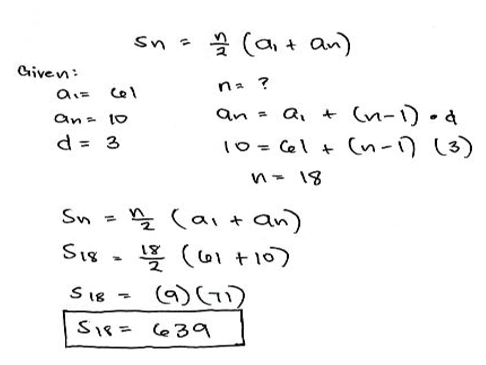 Sn = n/2 (a₁ + an)
Given:
a₁ = 61
an = 10
d = 3
n = ?
an = a₁ + (n-1) • d
10 = 61 + (n-1) (3)
n = 18
Sn = n/2 (a₁ + an)
S₁₈ = 18/2 (61 + 10)
S₁₈ = (9)(71)
S₁₈ = 639